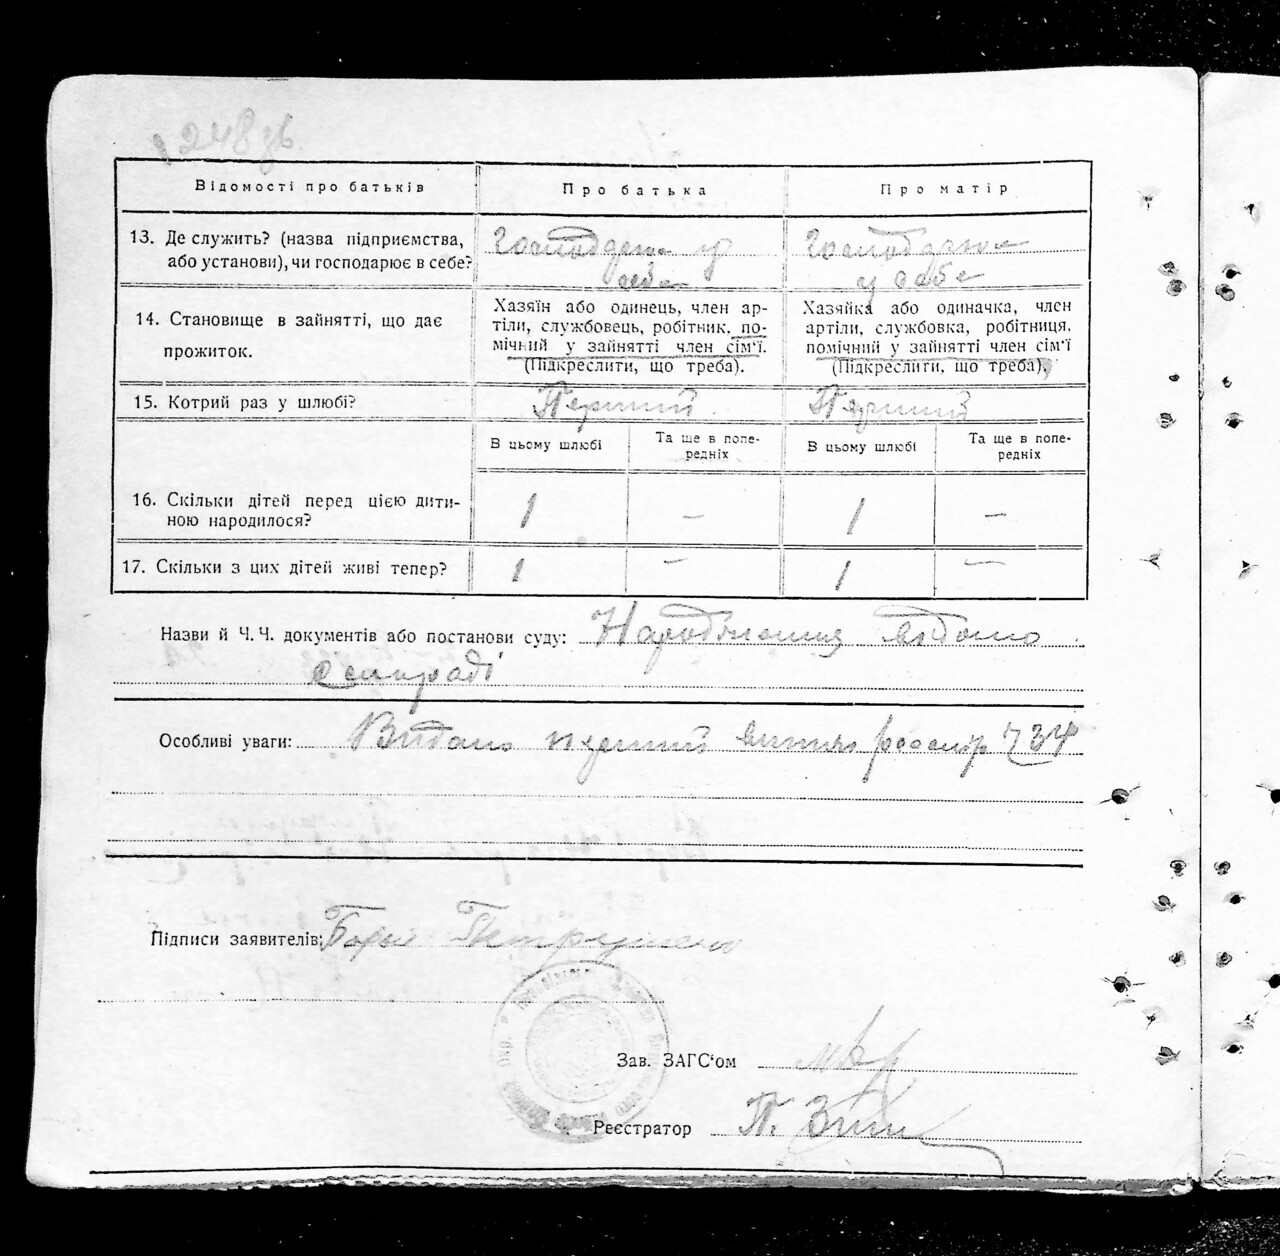 248зв
Відомості про батьків
Про батька
Про матір
13. Де служить? (назва підприємства,
або установи), чи господарює в себе?
Господарює у
себе
Господарює
у себе
14. Становище в зайнятті, що дає
прожиток.
Хазяїн або одинець, член ар-
тілі, службовець, робітник, по-
мічний у зайнятті член сім'ї.
(Підкреслити, що треба).
Хазяйка або одиначка, член
артілі, службовка, робітниця,
помічний у зайнятті член сім'ї
(Підкреслити, що треба).
15. Котрий раз у шлюбі?
Перший
Перший
В цьому шлюбі
Та ще в попе-
редніх
В цьому шлюбі
Та ще в попе-
редніх
16. Скільки дітей перед цією дити-
ною народилося?
1
—
1
—
17. Скільки з цих дітей живі тепер?
1
—
1
—
Назви й Ч. Ч. документів або постанови суду: Народження відомо
сільраді
Особливі уваги: Видано перший витяг 734
Підписи заявителів:
Зав. ЗАГС'ом
Реєстратор П.